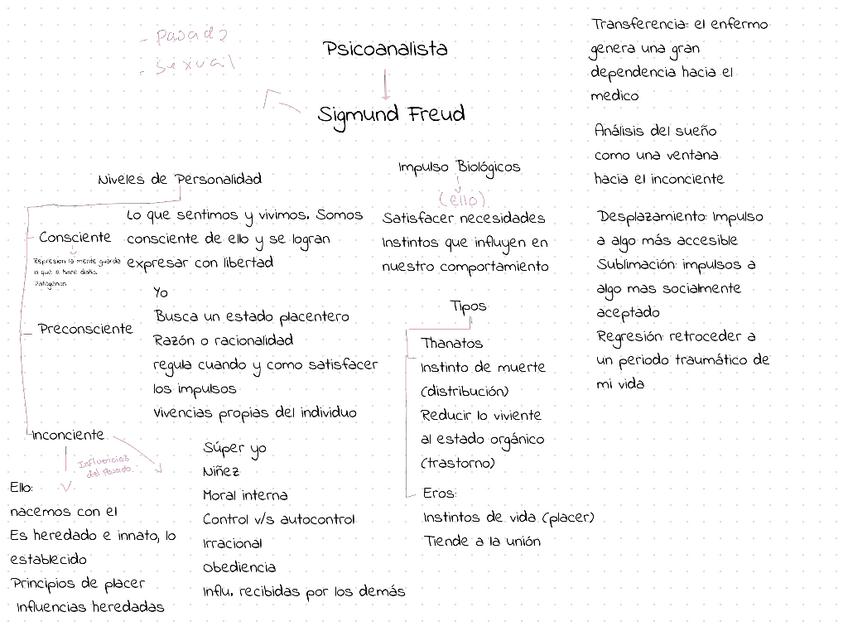 - pasado
- sexual
Psicoanalista
Sigmund Freud
Niveles de Personalidad
Consciente
Lo que sentimos y vivimos. Somos
consciente de ello y se logran
expresar con libertad
Represion la mente guarda
lo que le hace daño.
Patógenos
Preconsciente
Yo
Busca un estado placentero
Razón o racionalidad
regula cuando y como satisfacer
los impulsos
Vivencias propias del individuo
Inconciente
Influencias
del pasado.
Ello:
nacemos con el
Es heredado e innato, lo
establecido
Principios de placer
Influencias heredadas
Súper yo
Niñez
Moral interna
Control v/s autocontrol
Irracional
Obediencia
Influ. recibidas por los demás
Impulso Biológicos
(ello)
Satisfacer necesidades
Instintos que influyen en
nuestro comportamiento
Tipos
Thanatos
Instinto de muerte
(distribución)
Reducir lo viviente
al estado orgánico
(trastorno)
Eros:
Instintos de vida (placer)
Tiende a la unión
Transferencia: el enfermo
genera una gran
dependencia hacia el
medico
Análisis del sueño
como una ventana
hacia el inconciente
Desplazamiento: Impulso
a algo más accesible
Sublimación: impulsos a
algo mas socialmente
aceptado
Regresión: retroceder a
un periodo traumático de
mi vida